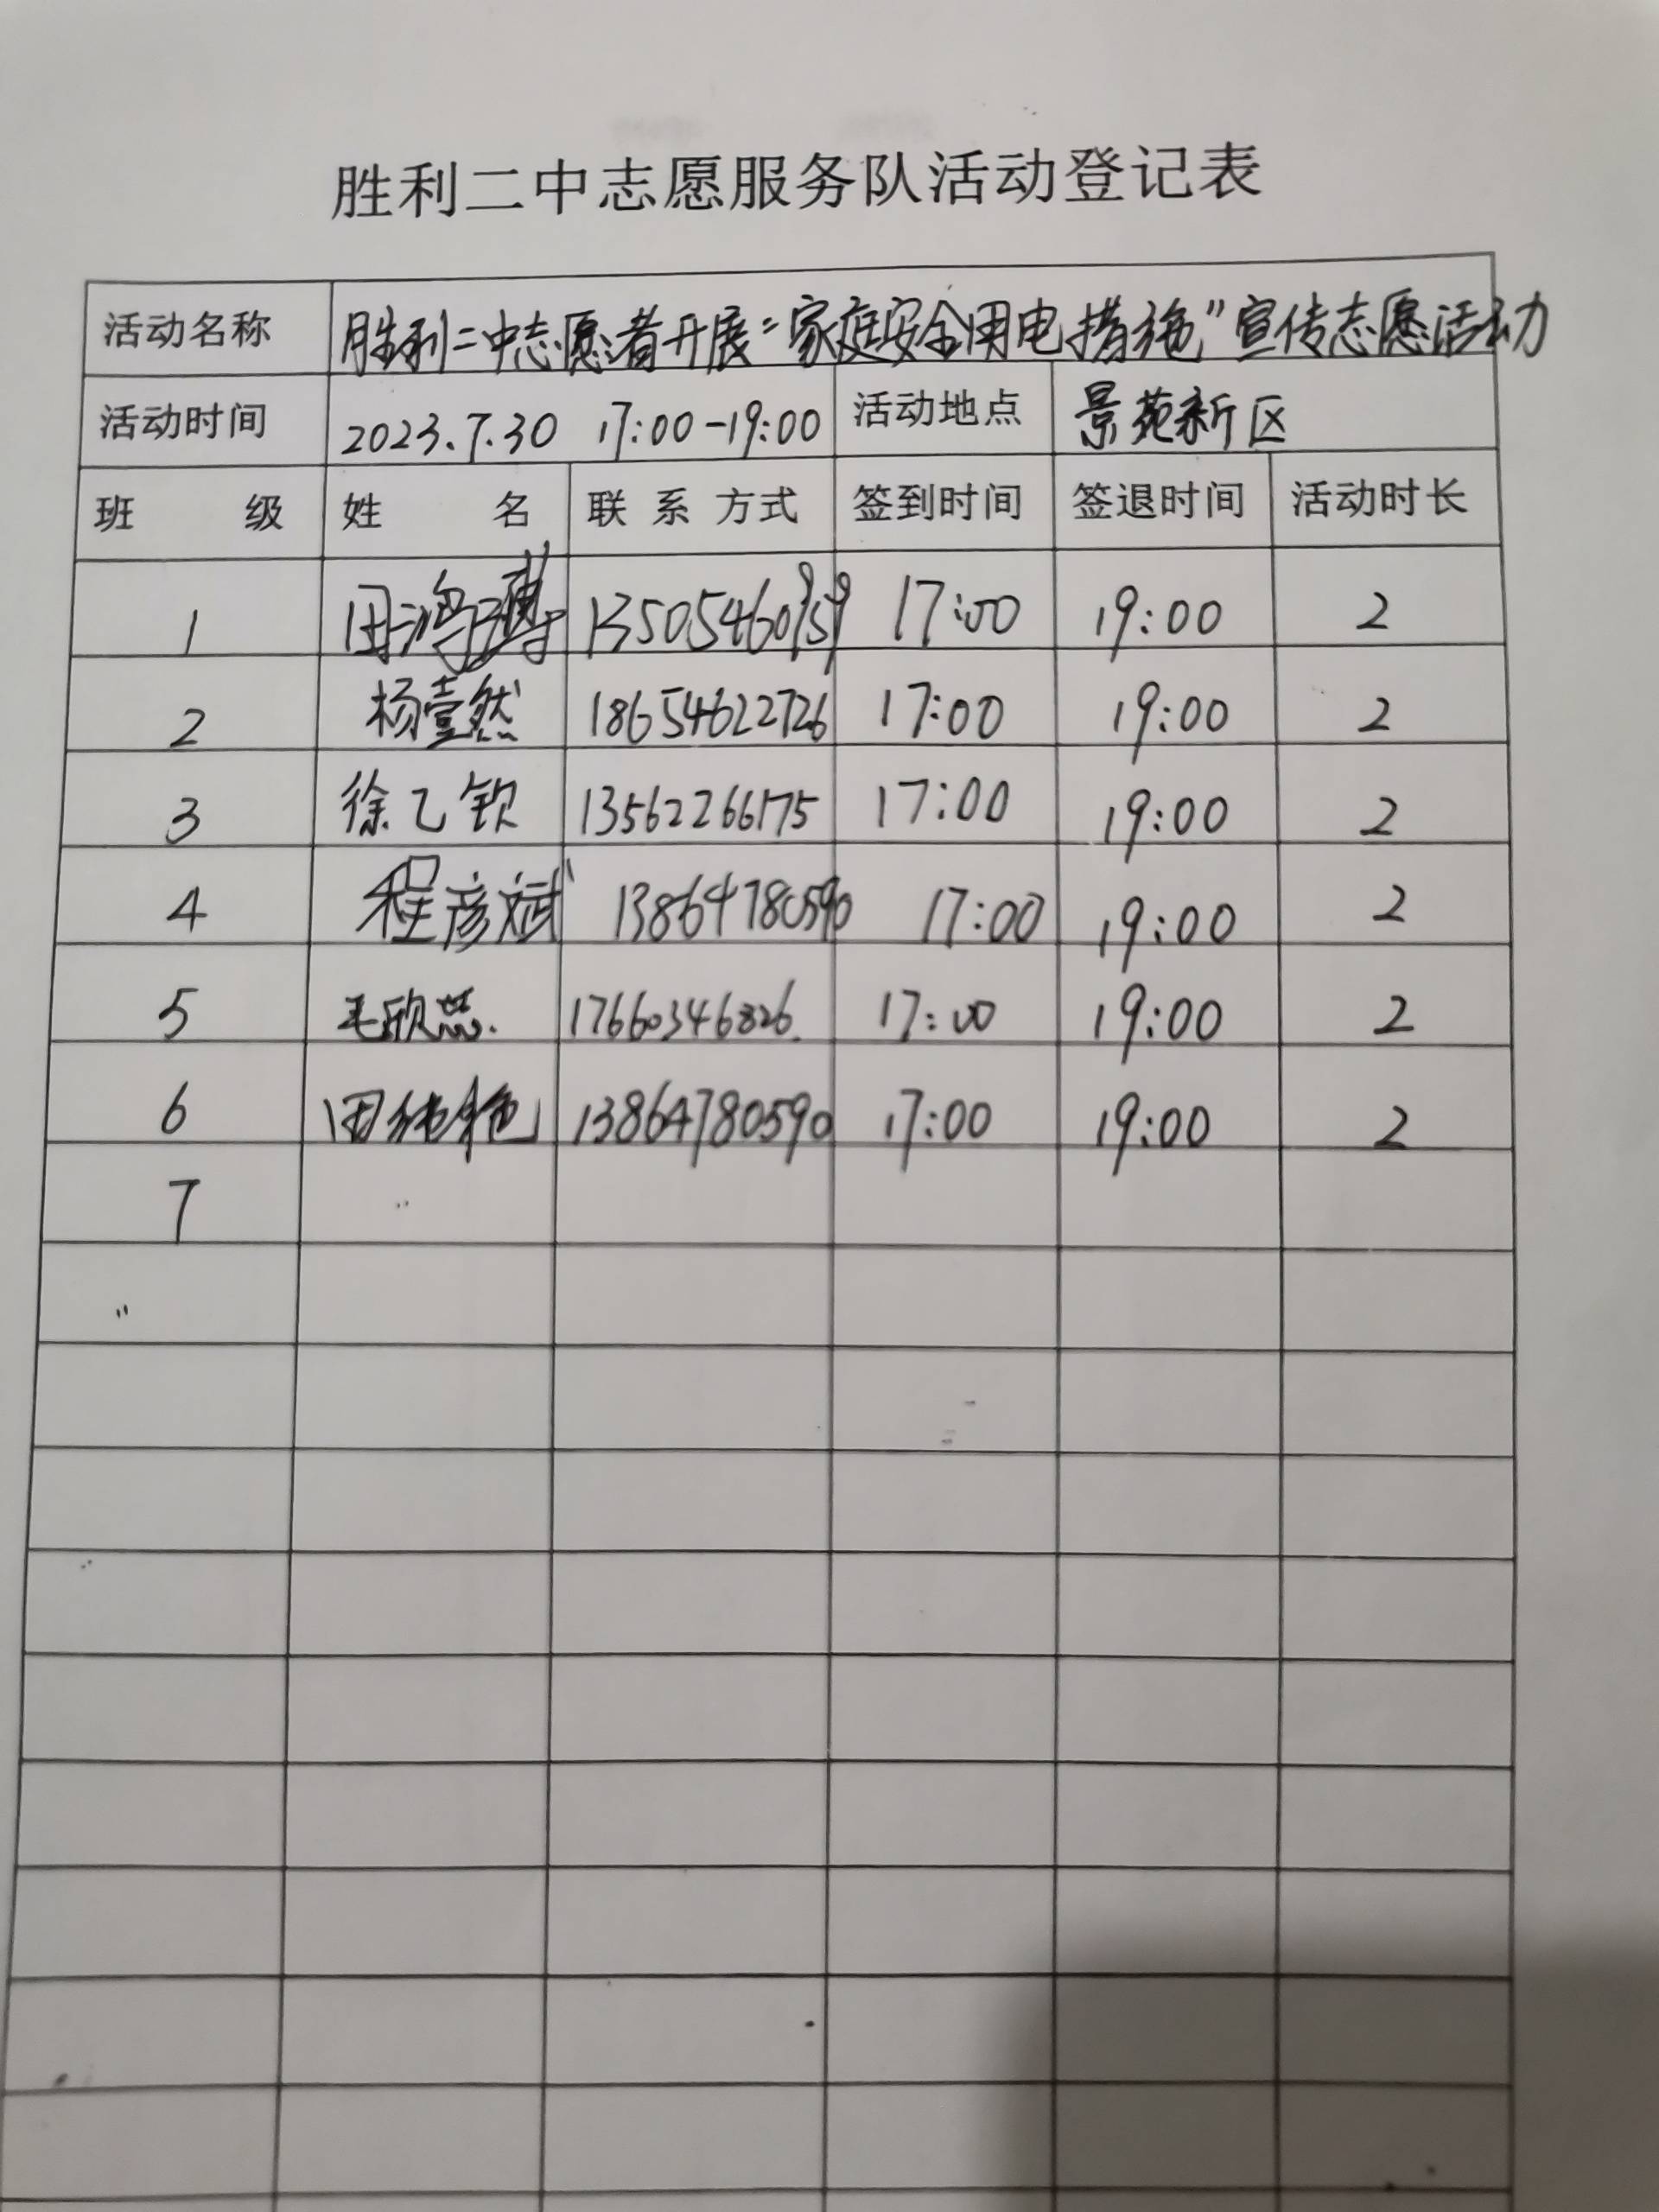 胜利二中志愿服务队活动登记表
活动名称 胜利二中志愿者开展“家庭安全用电措施”宣传志愿活动
活动时间 2023.7.30 17:00-19:00 活动地点 景苑新区
班 级 姓 名 联系方式 签到时间 签退时间 活动时长
1 田鸿 13505460959 17:00 19:00 2
2 杨壹然 18654622726 17:00 19:00 2
3 徐乙钦 13562266175 17:00 19:00 2
4 程彦斌 13864780590 17:00 19:00 2
5 毛欣蕊 17660346826 17:00 19:00 2
6 田 13864780590 17:00 19:00 2
7